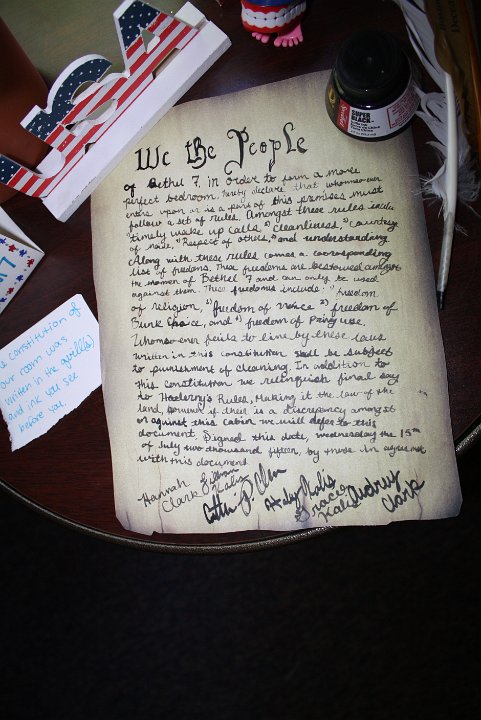 USA
SUPER
BLACK
We the People
of Bethel 7, in order to form a more
perfect bedroom, hereby declare that whomsoever
enters upon or is a part of this premises must
follow a set of rules. Amongst these rules include
"timely wake up calls, "cleanliness," "courtesy
of noise, "Respect of others," and understanding
Along with these rules comes a corresponding
list of fredoms. These fredoms are bestowed amongst
the women of Bethel 7 and can only be used
against them. These fredoms include: "fredom
of religion, "fredom of 2) fredom of
Bunk Choice, and fredom of use.
Whomsoever feils to line by these laws
written in this constitution shall be subject
to punishment of cleaning. In addition to
this constitution we relinquish final say
to Rules, Making it the law of the
land, however if their is a discrepancy amongst
or against this cabin we will defer to this
document. Signed this date, wednesday the 15th
of July two thousand fifteen, by those in agreement
with this document
Hannah
Clark
Gracie
Audrey
Clark
constitution of
our room was
written in the quill(s)
and ink you see
before you.